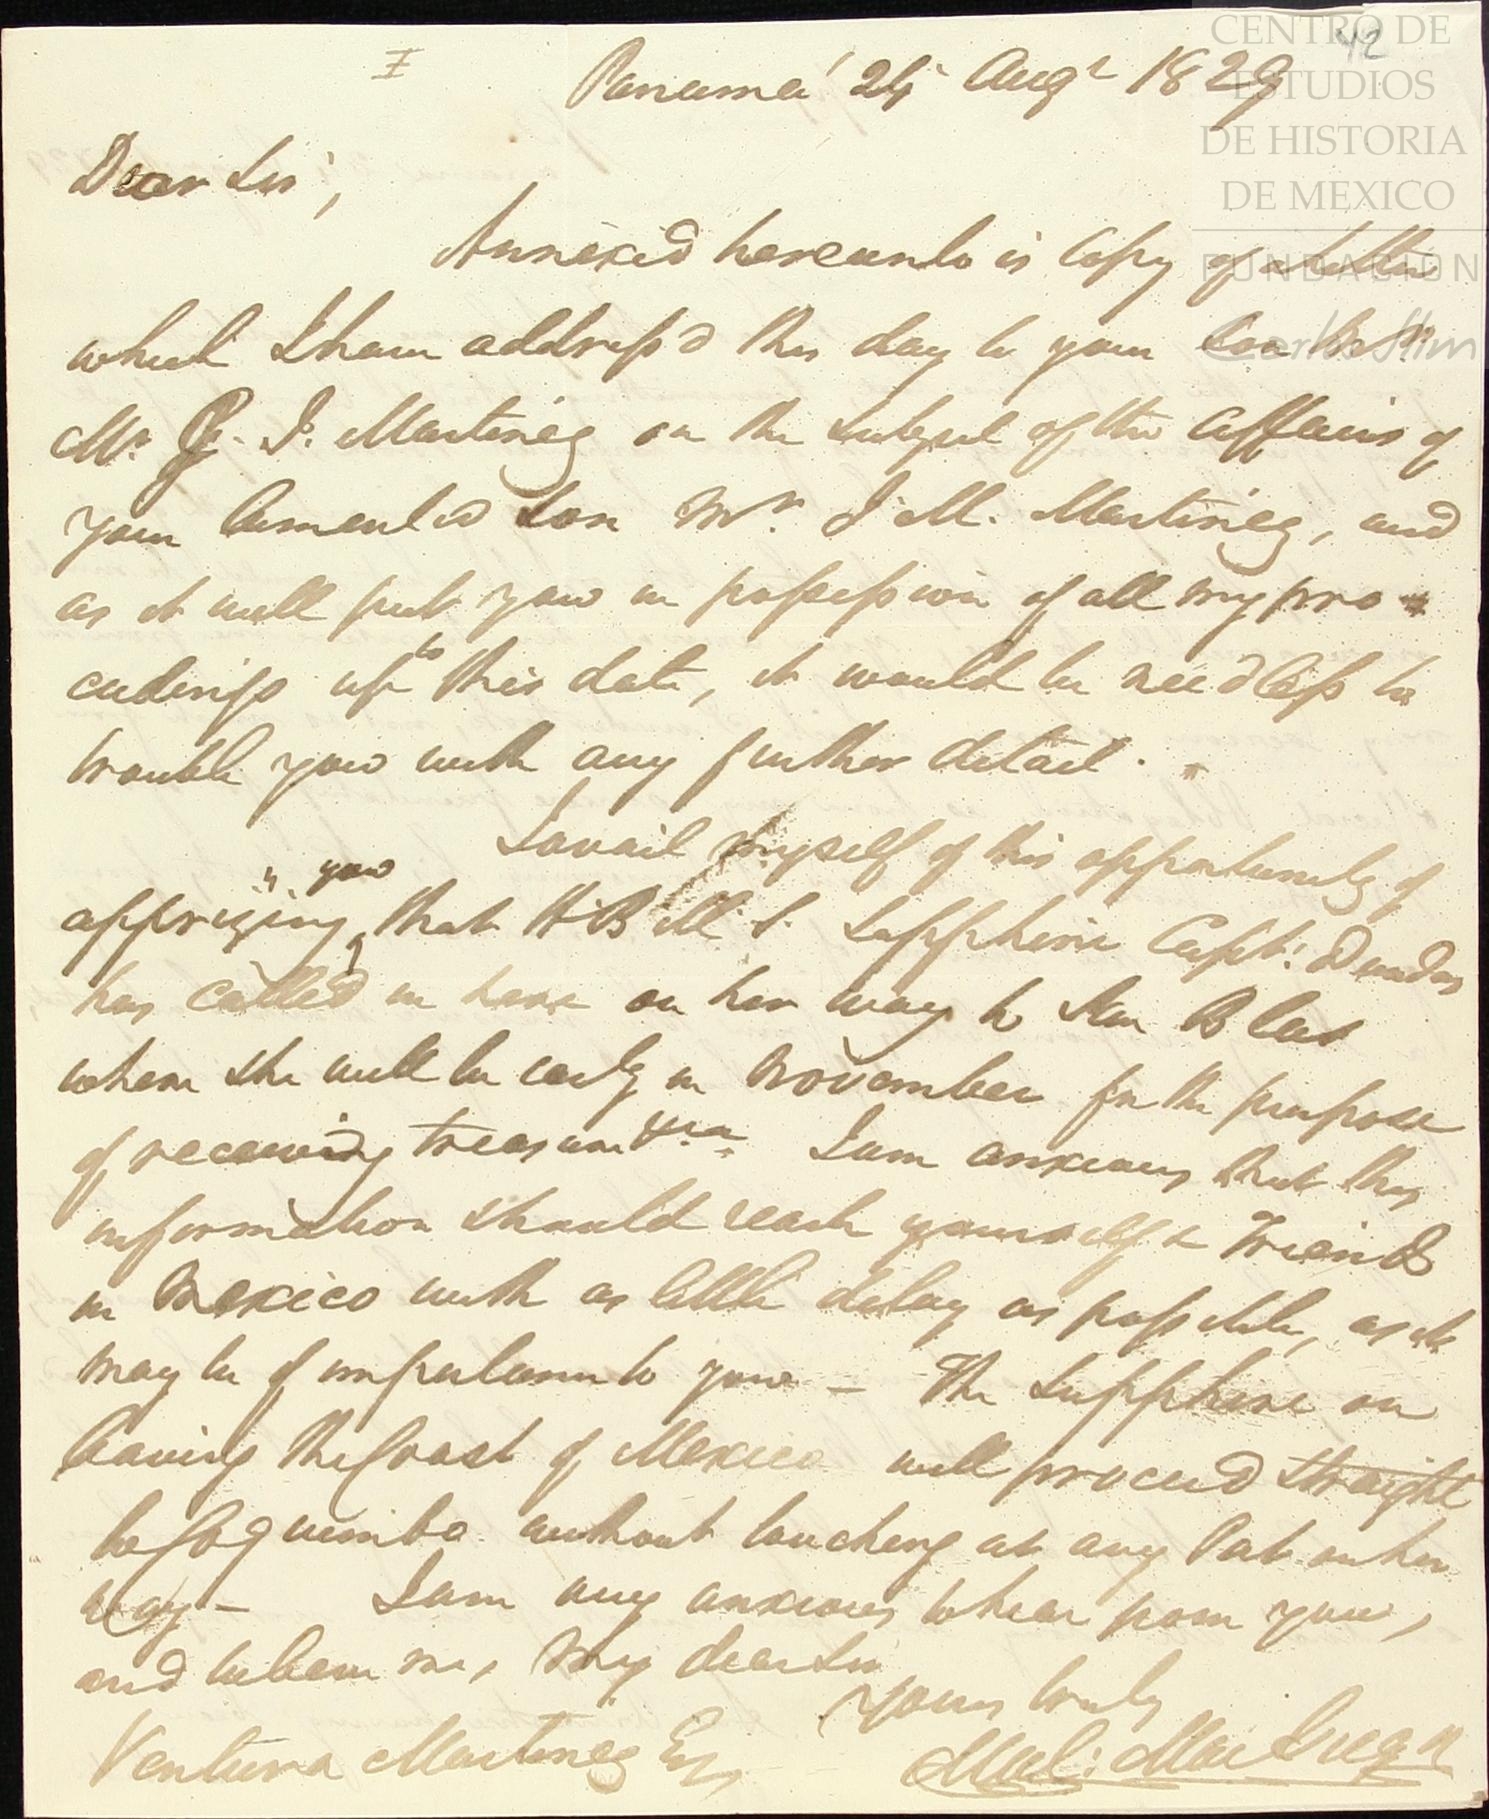 I
42
CENTRO DE
ESTUDIOS
DE HISTORIA
DE MEXICO
FUNDACION
Carlos Slim
Panamá 24 Augt 1829
Dear Sir,
Annexed hereunto is Copy of a letter
which I have address'd this day to your
Mr. J. Martinez on the subject of the affairs of
your lamented Son Mr. J. M. Martinez, and
as it will put you in possession of all my pro-
ceedings up to this date, it would be needless to
trouble you with any further detail.
I avail myself of this opportunity of
apprizing you that H. B. M. S. Sapphire Capt. Dundas
has called in here on her way to San Blas
where she will be early in November for the purpose
of receiving treasure &ca. I am anxious that this
information should reach yourself & Friends
in Mexico with as little delay as possible, as it
may be of importance to you — The Sapphire on
leaving the Coast of Mexico will proceed straight
to Coquimbo without touching at any Port on her
way — I am very anxious to hear from you,
and believe me, My dear Sir
Yours truly
Ventura Martinez Esq
Mal: MacGregor